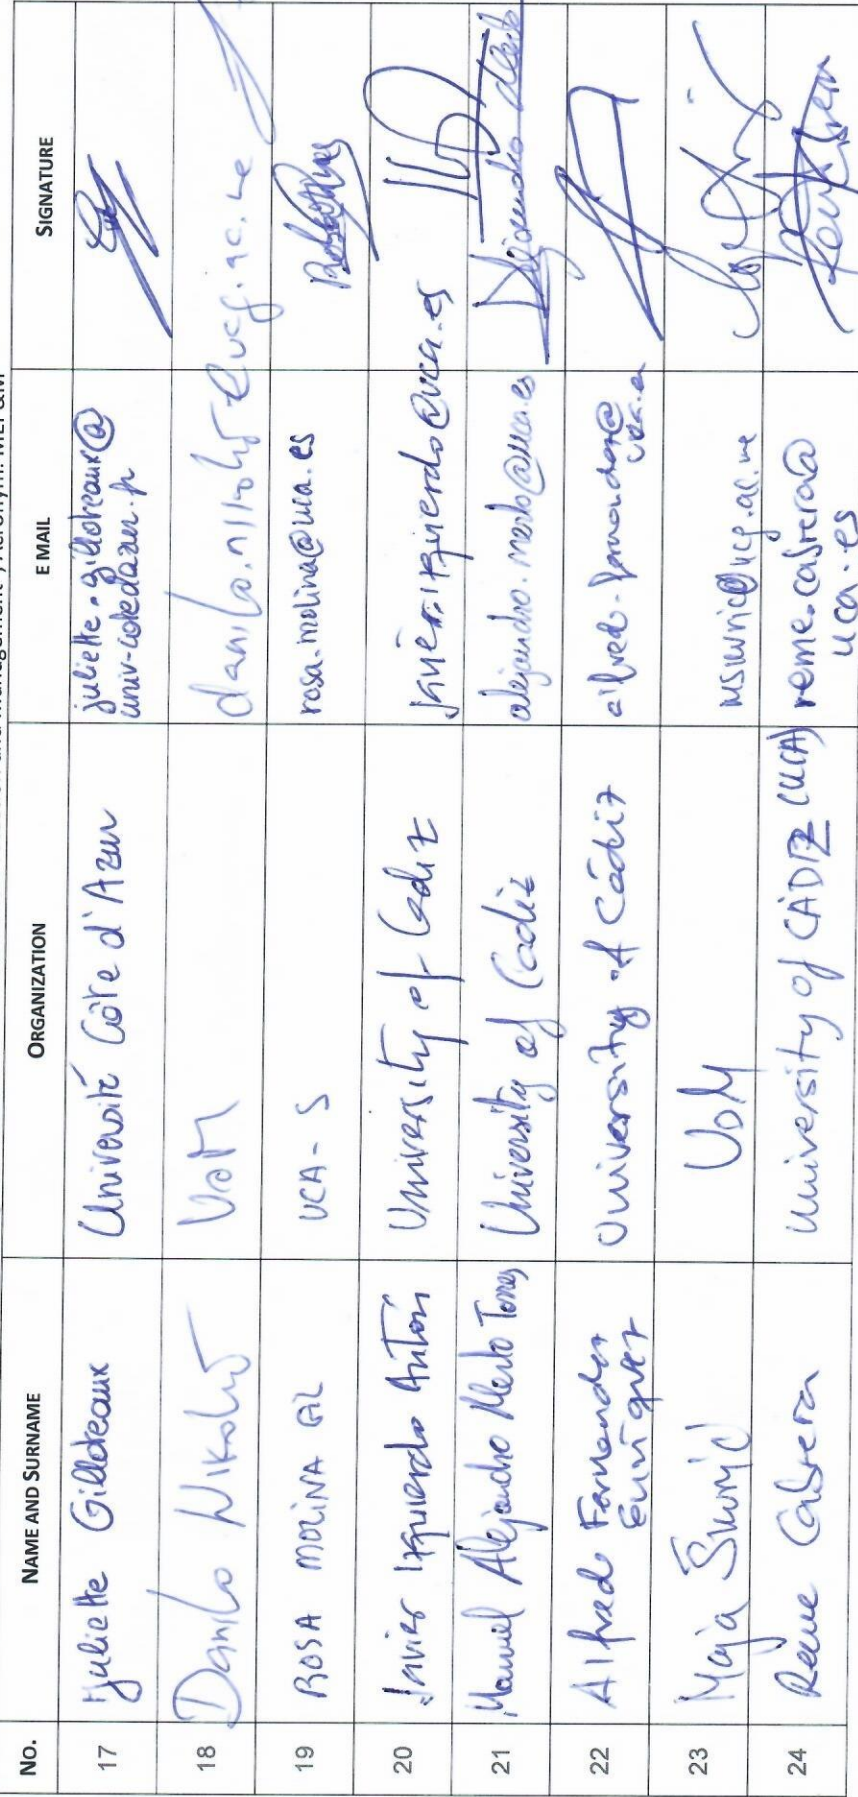 and Management", Acronym: MEP&M
No. NAME AND SURNAME ORGANIZATION E MAIL SIGNATURE
17 Juliette Gilloteaux Université Côte d'Azur juliette.gilloteaux@
univ-cotedazur.fr
18 Danilo Nikolić UoM
19 ROSA MOLINA GIL UCA-S rosa.molina@uca.es
20 Javier Izquierdo Antón University of Cadiz javier.izquierdo@uca.es
21 Manuel Alejandro Merlo Torres University of Cadiz alejandro.merlo@uca.es
22 Alfredo Fernandez
Enríquez University of Cádiz alfredo.fernandez@
uca.es
23 Maja Škurić UoM mskuric@ucg.ac.me
24 Reme Cabrera University of CÁDIZ (UCA) reme.cabrera@
uca.es